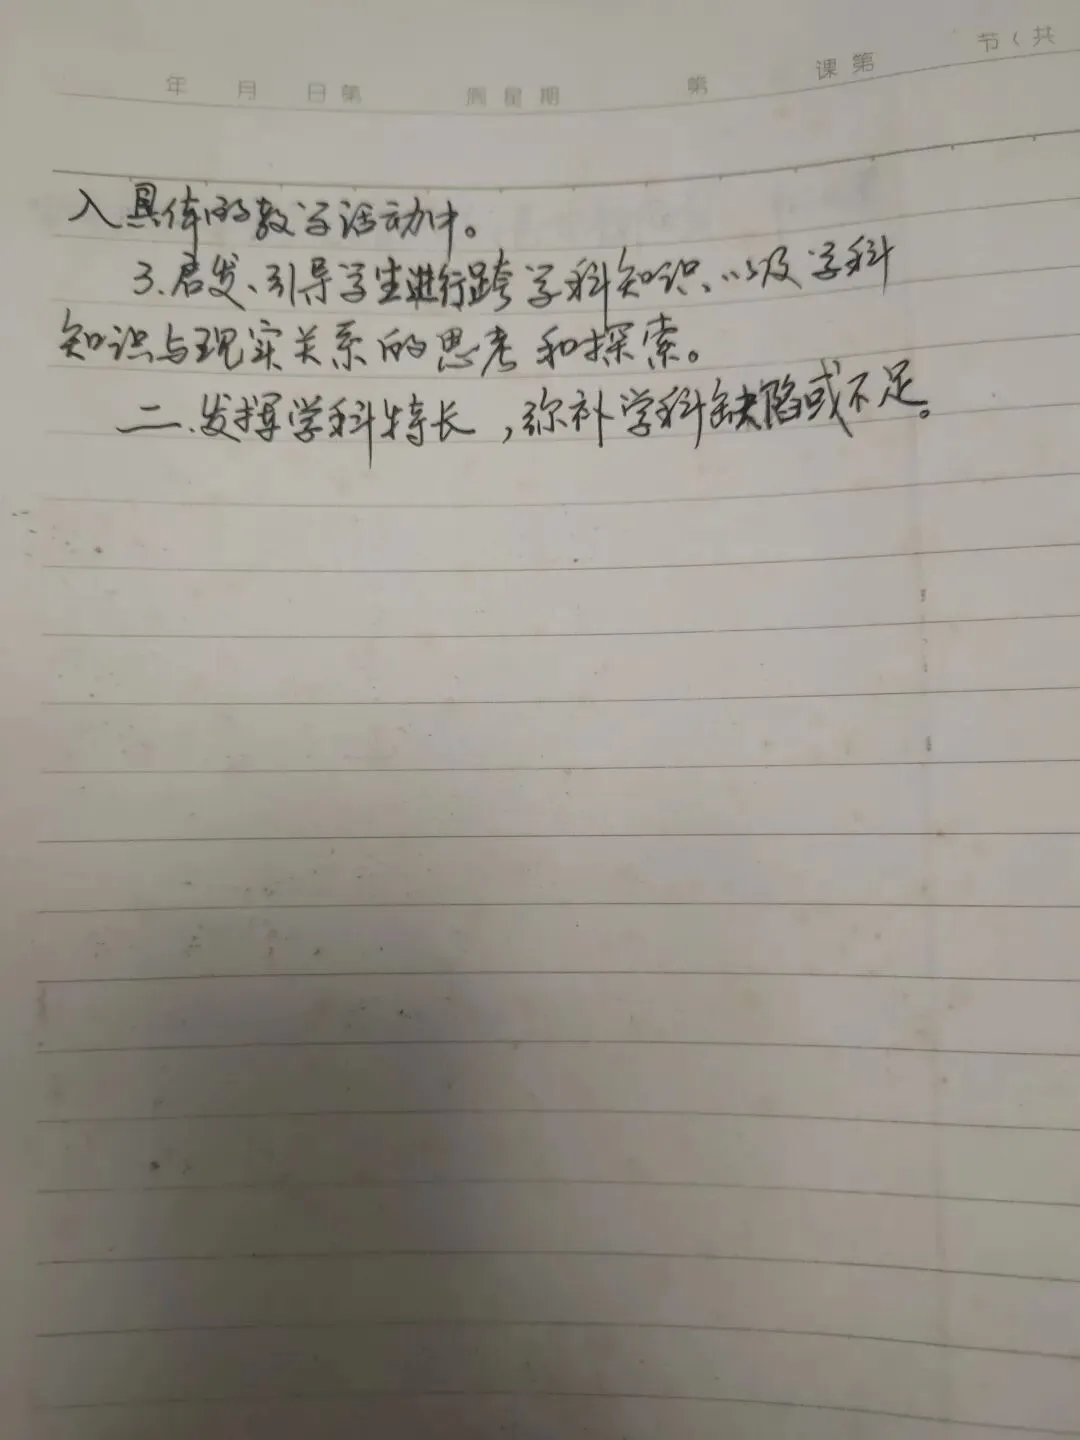 年 月 日第 周星期 第 课第 节(共
入具体的教学活动中。
3.启发、引导学生进行跨学科知识、以及学科
知识与现实关系的思考和探索。
二.发挥学科特长,弥补学科缺陷或不足。